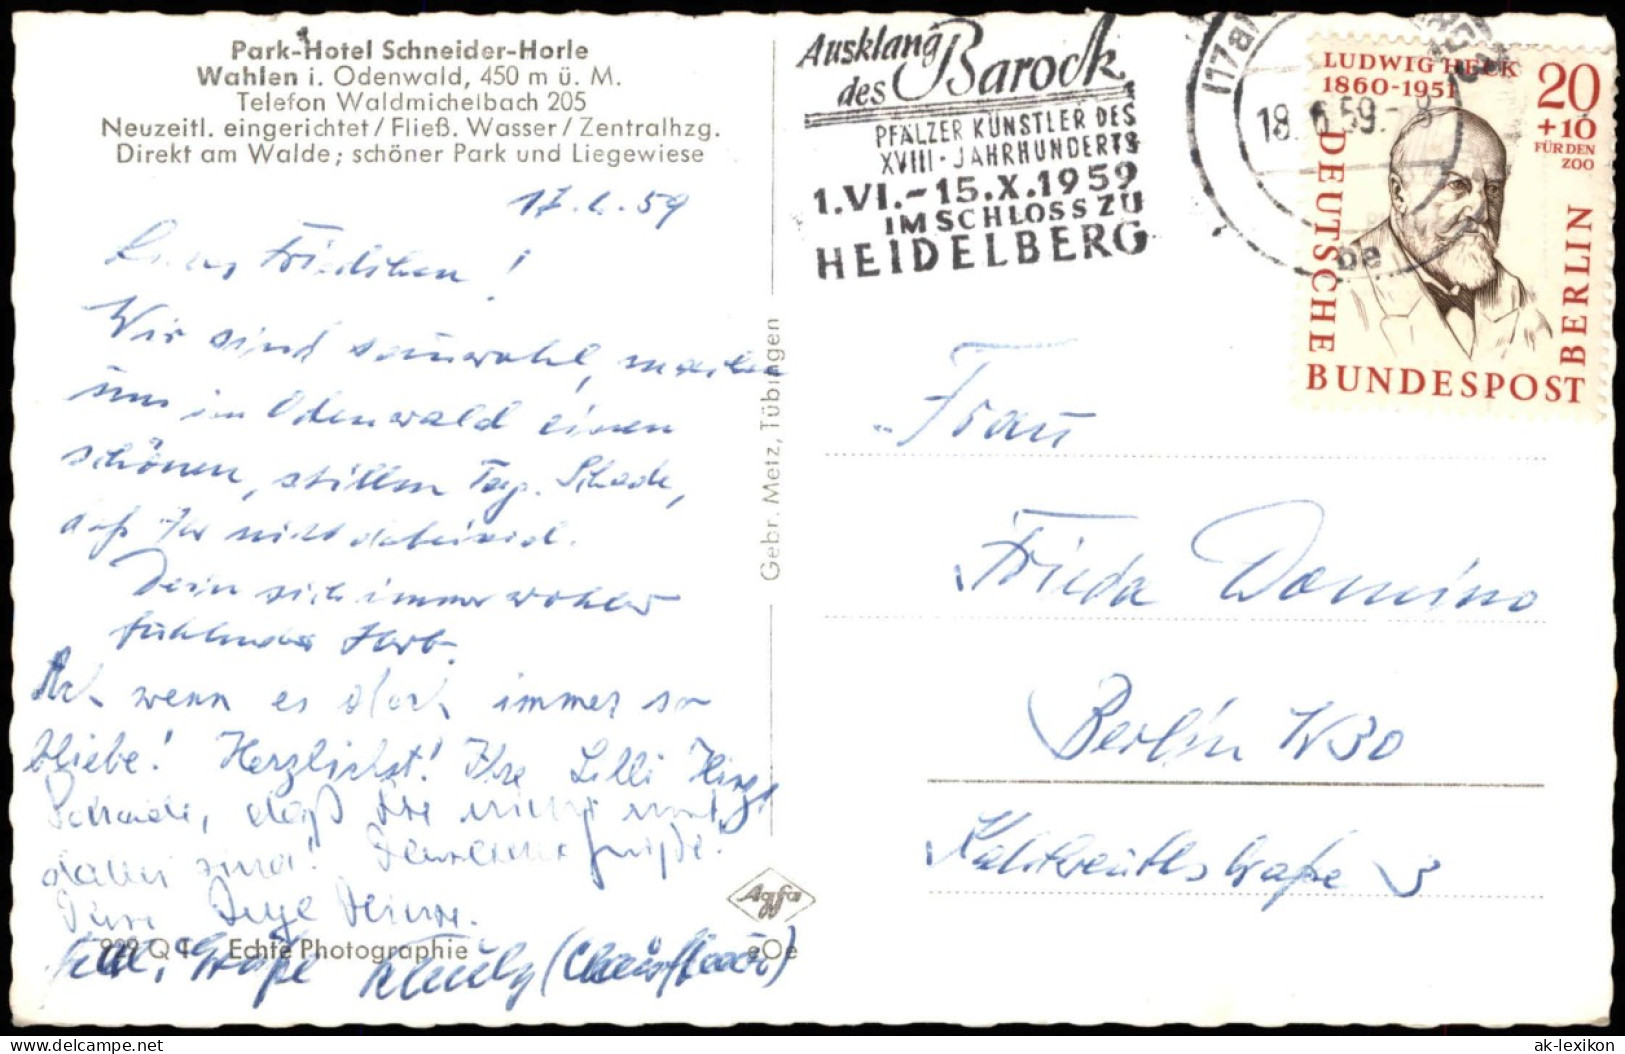 Park-Hotel Schneider-Horle
Wahlen i. Odenwald, 450 m ü. M.
Telefon Waldmichelbach 205
Neuzeitl. eingerichtet / Fließ. Wasser / Zentralhzg.
Direkt am Walde; schöner Park und Liegewiese
17.6.59
Friedchen!
Wir sind sauwohl, machen
uns im Odenwald einen
schönen, stillen Tag. Schade,
daß Ihr nicht dabei seid.
Dein sich immer wohler
fühlender Herb.
Ach wenn es doch immer so
bliebe! Herzlichst! Ihre Lilli
Schade, daß Sie nicht mit
dabei sind! Grüße!
Ihre Inge
Grüße
829 Q Echte Photographie eOe
Gebr. Metz, Tübingen
Agfa
Ausklang
des Barock
PFÄLZER KÜNSTLER DES
XVIII-JAHRHUNDERTS
1.VI.-15.X.1959
IM SCHLOSS ZU
HEIDELBERG
(17B)
18.6.59.-8
be
LUDWIG HECK
1860-1951
20
+10
FÜR DEN
ZOO
DEUTSCHE
BUNDESPOST
BERLIN
Frau
Frieda Domino
Berlin W30
Kalckreuthstraße 3
ak-lexikon.com